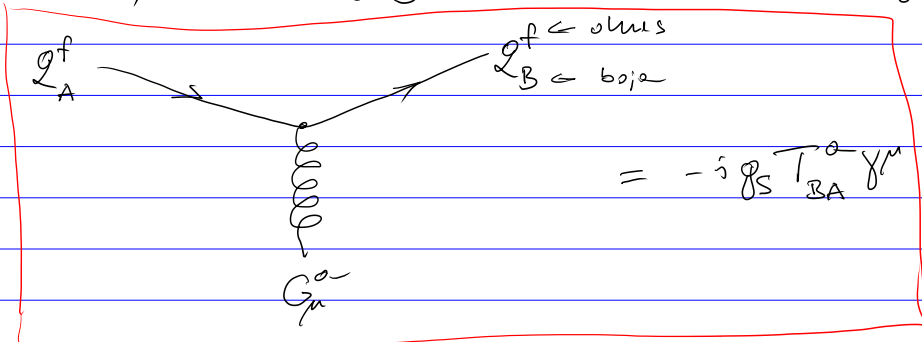 q_A^f
q_B^f ← okus
← boja
= -i g_S T^a_{BA} γ^μ
G^a_μ